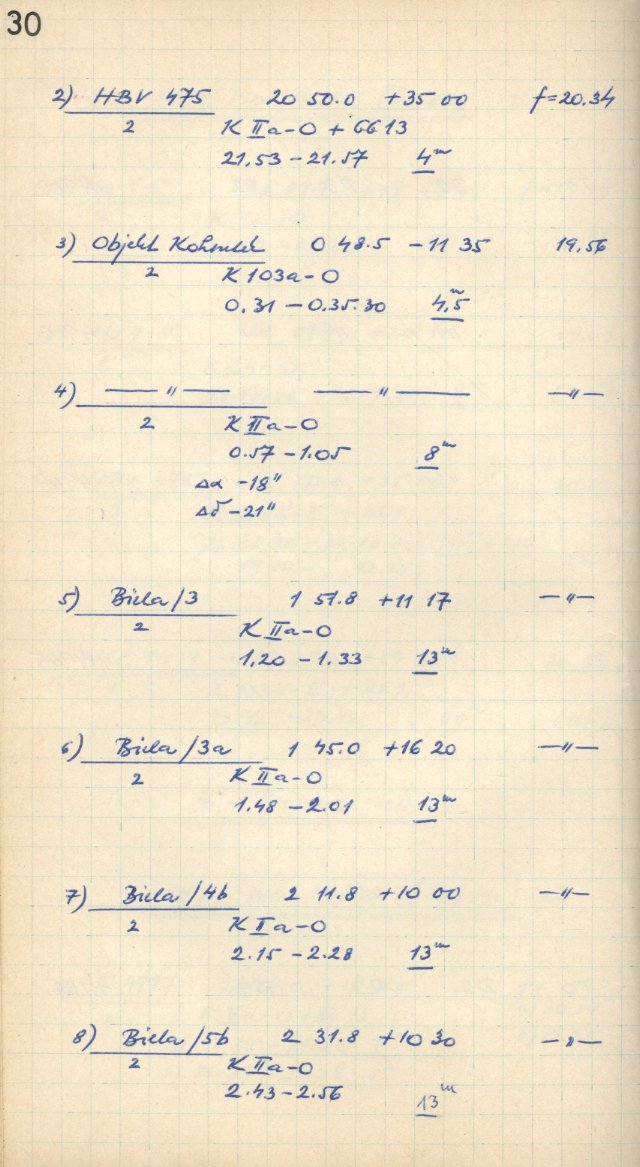 30
2) HBV 475 20 50.0 +35 00 f=20.34
2 K IIa-O + GG13
21,53 - 21.57 4ᵐ
3) Objekt Kohoutek 0 48.5 -11 35 19,56
2 K 103a-O
0,31 - 0.35.30 4,5ᵐ
4) — " — — " — — " —
2 K IIa-O
0.57 - 1.05 8ᵐ
Δα -18"
Δδ -21"
5) Biela/3 1 51.8 +11 17 — " —
2 K IIa-O
1,20 - 1.33 13ᵐ
6) Biela/3a 1 45.0 +16 20 — " —
2 K IIa-O
1.48 - 2.01 13ᵐ
7) Biela/4b 2 11.8 +10 00 — " —
2 K IIa-O
2.15 - 2.28 13ᵐ
8) Biela/5b 2 31.8 +10 30 — " —
2 K IIa-O
2.43 - 2.56 13ᵐ